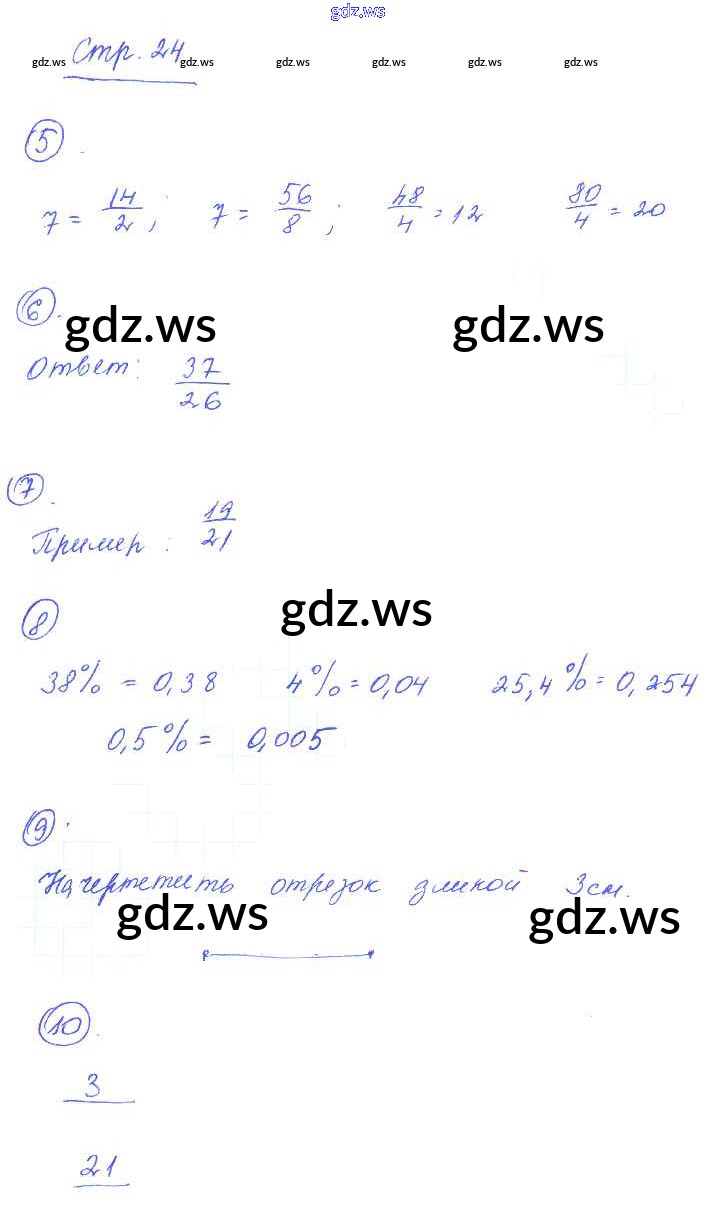 gdz.ws
Стр. 24
gdz.ws gdz.ws gdz.ws gdz.ws gdz.ws gdz.ws
5.
7 = 14/2; 7 = 56/8; 48/4 = 12 80/4 = 20
6.
gdz.ws gdz.ws
Ответ: 37/26
7.
Пример: 19/21
gdz.ws
8
38% = 0,38 4% = 0,04 25,4% = 0,254
0,5% = 0,005
9.
Начертеть отрезок длиной 3см.
gdz.ws gdz.ws
10.
3
21